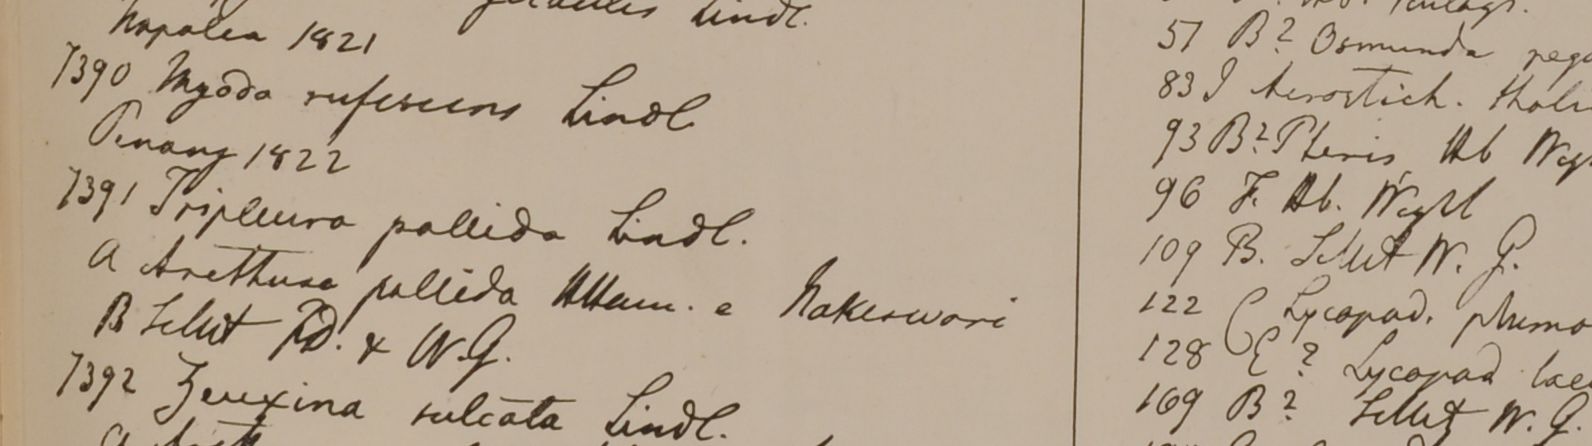 gracilis Lindl.
Napalea 1821
7390 Myoda rufescens Lindl
Penang 1822
7391 Tripleura pallida Lindl.
a Arethusa pallida HHam. e Nakerwari
B Silhet FD. & W.G.
7392 Zeuxina sulcata Lindl.
57 B? Osmunda rega
83 J Acrostich.
93 B? Pteris Hb Wigh
96 F. Hb. Wight
109 B. Silhet W. G.
122 Lycopod. plumo
128 E? Lycopod lae
169 B? Silhet W. G.